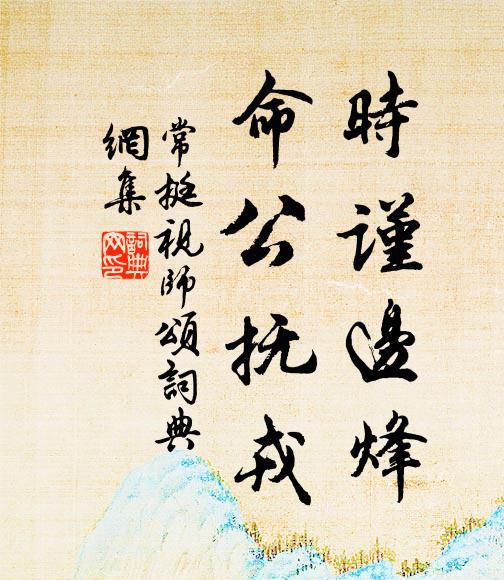 時謹邊烽
命公抚戎
常挺視師頌詞典
網集
詞典
网印